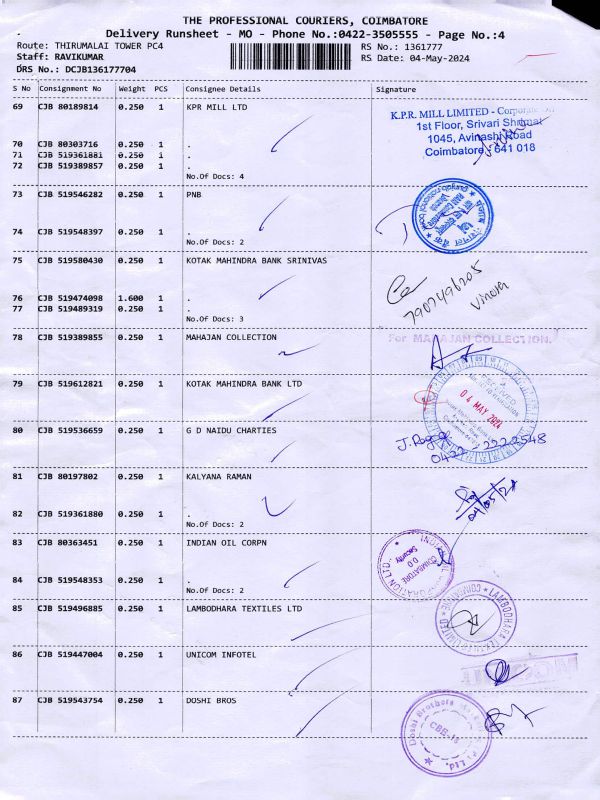 THE PROFESSIONAL COURIERS, COIMBATORE
Delivery Runsheet - MO - Phone No.:0422-3505555 - Page No.:4
Route: THIRUMALAI TOWER PC4 RS No.: 1361777
Staff: RAVIKUMAR RS Date: 04-May-2024
DRS No.: DCJB136177704
S No Consignment No Weight PCS Consignee Details Signature
69 CJB 80189814 0.250 1 KPR MILL LTD
K.P.R. MILL LIMITED - Corporate
1st Floor, Srivari Shrimat
1045, Avinashi Road
Coimbatore - 641 018
70 CJB 80303716 0.250 1 .
71 CJB 519361881 0.250 1 .
72 CJB 519389857 0.250 1 .
No.Of Docs: 4
73 CJB 519546282 0.250 1 PNB
punjab national bank
74 CJB 519548397 0.250 1 .
No.Of Docs: 2
75 CJB 519580430 0.250 1 KOTAK MAHINDRA BANK SRINIVAS
7907496205
76 CJB 519474098 1.600 1 .
77 CJB 519489319 0.250 1 .
No.Of Docs: 3
78 CJB 519389855 0.250 1 MAHAJAN COLLECTION
For MAHAJAN COLLECTION.
79 CJB 519612821 0.250 1 KOTAK MAHINDRA BANK LTD
RECEIVED
04 MAY 2024
80 CJB 519536659 0.250 1 G D NAIDU CHARTIES
0422 - 2222548
81 CJB 80197802 0.250 1 KALYANA RAMAN
04/05/24
82 CJB 519361880 0.250 1 .
No.Of Docs: 2
83 CJB 80363451 0.250 1 INDIAN OIL CORPN
INDIAN OIL CORPORATION LTD.
Security
COIMBATORE
84 CJB 519548353 0.250 1 .
No.Of Docs: 2
85 CJB 519496885 0.250 1 LAMBODHARA TEXTILES LTD
LAMBODHARA TEXTILES LIMITED
COIMBATORE
86 CJB 519447004 0.250 1 UNICOM INFOTEL
87 CJB 519543754 0.250 1 DOSHI BROS
Doshi Brothers
CBE-18